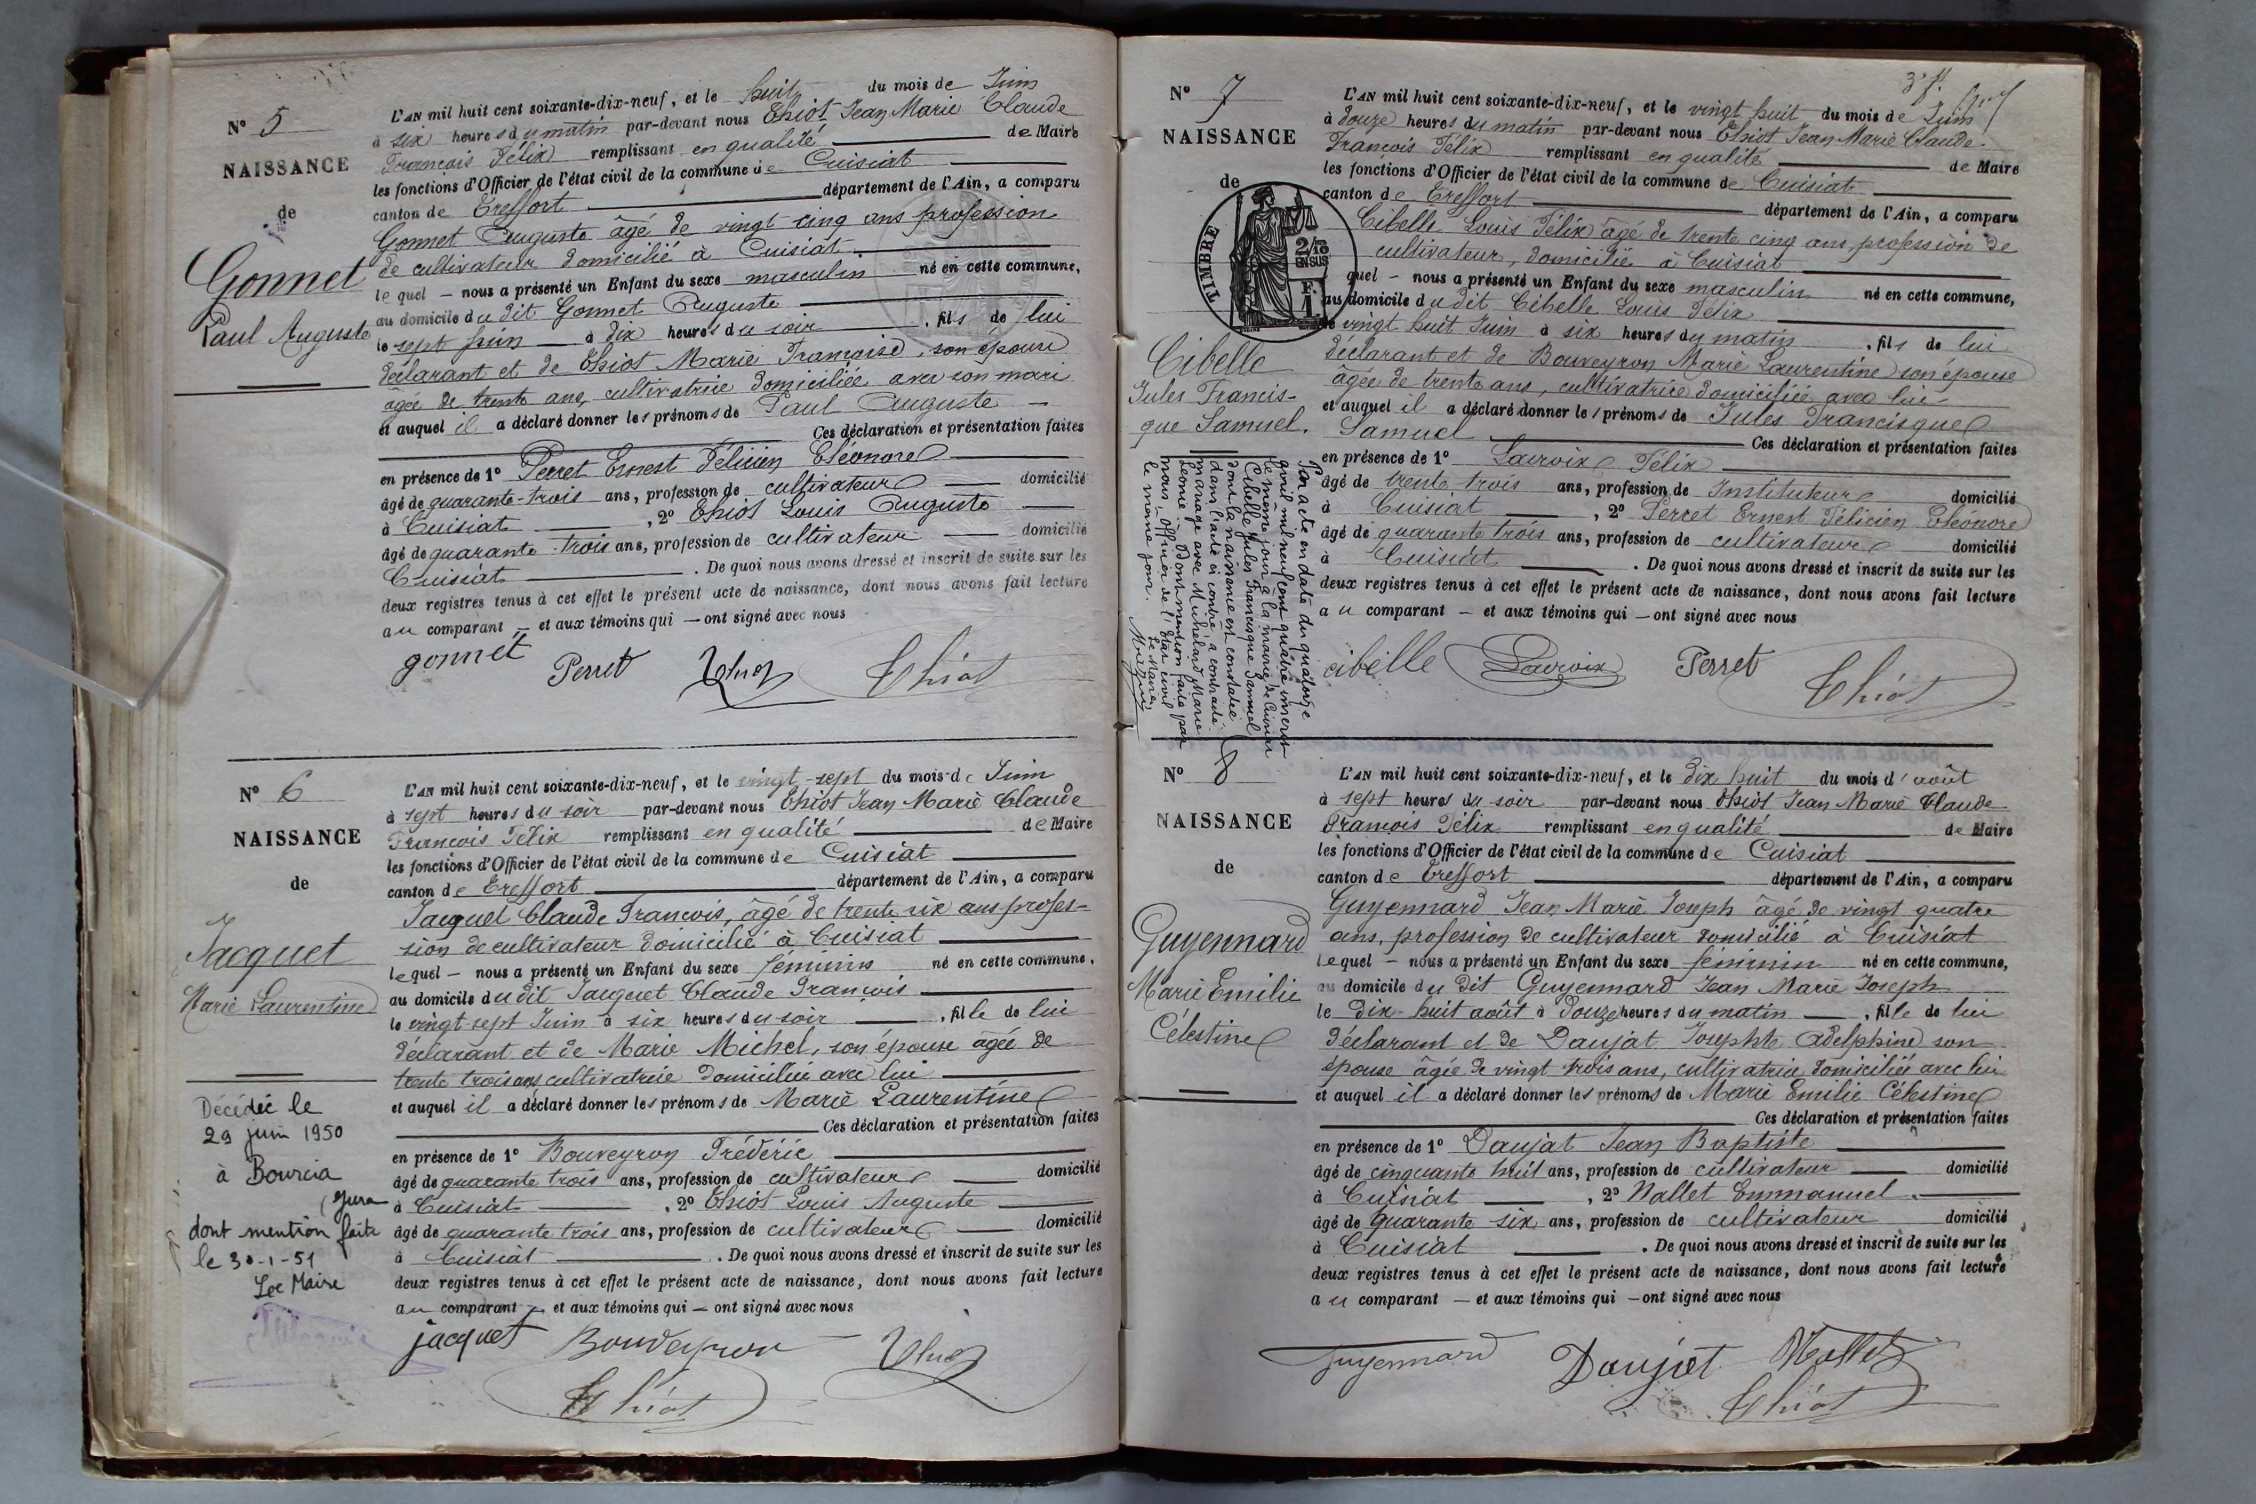 N° 5
NAISSANCE
de
Gonnet
Paul Auguste
L'AN mil huit cent soixante-dix-neuf, et le huit du mois de Juin
à six heures du matin par-devant nous Thiot Jean Marie Claude
François Félix remplissant en qualité de Maire
les fonctions d'Officier de l'état civil de la commune de Cuisiat
canton de Treffort département de l'Ain, a comparu
Gonnet Auguste âgé de vingt cinq ans profession
de cultivateur domicilié à Cuisiat
lequel — nous a présenté un Enfant du sexe masculin né en cette commune,
au domicile du dit Gonnet Auguste
le sept juin à dix heures du soir, fils de lui
déclarant et de Thiot Marie Françoise, son épouse
agée de trente ans, cultivatrice domiciliée avec son mari
et auquel il a déclaré donner les prénoms de Paul Auguste
Ces déclaration et présentation faites
en présence de 1° Perret Ernest Félicien Eléonore
âgé de quarante-trois ans, profession de cultivateur domicilié
à Cuisiat, 2° Thiot Louis Auguste
âgé de quarante-trois ans, profession de cultivateur domicilié
Cuisiat. De quoi nous avons dressé et inscrit de suite sur les
deux registres tenus à cet effet le présent acte de naissance, dont nous avons fait lecture
au comparant — et aux témoins qui — ont signé avec nous
gonnet Perret Thiot Thiot
N° 6
NAISSANCE
de
Jacquet
Marie Laurentine
Décédée le
29 juin 1950
à Bourcia
(Jura
dont mention faite
le 30-1-51
Le Maire
L'AN mil huit cent soixante-dix-neuf, et le vingt-sept du mois de Juin
à sept heures du soir par-devant nous Thiot Jean Marie Claude
François Félix remplissant en qualité de Maire
les fonctions d'Officier de l'état civil de la commune de Cuisiat
canton de Treffort département de l'Ain, a comparu
Jacquet Claude François, âgé de trente six ans profes-
sion de cultivateur domicilié à Cuisiat
lequel — nous a présenté un Enfant du sexe féminin né en cette commune,
au domicile du dit Jacquet Claude François
le vingt sept Juin à six heures du soir, fille de lui
déclarant et de Marie Michel, son épouse âgée de
trente trois ans cultivatrice domiciliée avec lui
et auquel il a déclaré donner les prénoms de Marie Laurentine
Ces déclaration et présentation faites
en présence de 1° Bouveyron Frédéric
âgé de quarante trois ans, profession de cultivateur domicilié
à Cuisiat, 2° Thiot Louis Auguste
âgé de quarante trois ans, profession de cultivateur domicilié
à Cuisiat. De quoi nous avons dressé et inscrit de suite sur les
deux registres tenus à cet effet le présent acte de naissance, dont nous avons fait lecture
au comparant — et aux témoins qui — ont signé avec nous
jacquet Bouveyron Thiot
Thiot
3e f.
N° 7
NAISSANCE
de
TIMBRE
2/10
EN SUS
F.
1.
Cibelle
Jules Francis-
que Samuel.
Par acte en date du quatorze
avril mil neuf cent quatre inscrit
le même jour à la mairie de Cuisiat
Cibelle Jules Francisque Samuel
dont la naissance est constatée
dans l'acte ci contre a contracté
mariage avec Michelard Marie
Léonie. Dont mention faite par
nous, officier de l'Etat civil
le même jour.
Le Maire
L'AN mil huit cent soixante-dix-neuf, et le vingt huit du mois de Juin
à douze heures du matin par-devant nous Thiot Jean Marie Claude
François Félix remplissant en qualité de Maire
les fonctions d'Officier de l'état civil de la commune de Cuisiat
canton de Treffort département de l'Ain, a comparu
Cibelle Louis Félix âgé de trente cinq ans, profession de
cultivateur, domicilié à Cuisiat
quel — nous a présenté un Enfant du sexe masculin né en cette commune,
au domicile du dit Cibelle Louis Félix
le vingt huit Juin à six heures du matin, fils de lui
déclarant et de Bouveyron Marie Laurentine son épouse
âgée de trente ans, cultivatrice domiciliée avec lui
et auquel il a déclaré donner les prénoms de Jules Francisque
Samuel Ces déclaration et présentation faites
en présence de 1° Lacroix Félix
âgé de trente trois ans, profession de Instituteur domicilié
à Cuisiat, 2° Perret Ernest Félicien Eléonore
âgé de quarante trois ans, profession de cultivateur domicilié
à Cuisiat. De quoi nous avons dressé et inscrit de suite sur les
deux registres tenus à cet effet le présent acte de naissance, dont nous avons fait lecture
au comparant — et aux témoins qui — ont signé avec nous
cibelle Lacroix Perret Thiot
N° 8
NAISSANCE
de
Guyennard
Marie Emilie
Célestine
L'AN mil huit cent soixante-dix-neuf, et le dix huit du mois d'août
à sept heures du soir par-devant nous Thiot Jean Marie Claude
François Félix remplissant en qualité de Maire
les fonctions d'Officier de l'état civil de la commune de Cuisiat
canton de Treffort département de l'Ain, a comparu
Guyennard Jean Marie Joseph âgé de vingt quatre
ans, profession de cultivateur domicilié à Cuisiat
lequel — nous a présenté un Enfant du sexe féminin né en cette commune,
au domicile du dit Guyennard Jean Marie Joseph
le dix-huit août à douze heures du matin, fille de lui
déclarant et de Daujat Josephte Adelphine son
épouse âgée de vingt trois ans, cultivatrice domiciliée avec lui
et auquel il a déclaré donner les prénoms de Marie Emilie Célestine
Ces déclaration et présentation faites
en présence de 1° Daujat Jean Baptiste
âgé de cinquante huit ans, profession de cultivateur domicilié
à Cuisiat, 2° Nallet Emmanuel
âgé de quarante six ans, profession de cultivateur domicilié
à Cuisiat. De quoi nous avons dressé et inscrit de suite sur les
deux registres tenus à cet effet le présent acte de naissance, dont nous avons fait lecture
au comparant — et aux témoins qui — ont signé avec nous
Guyennard Daujat Nallet
Thiot